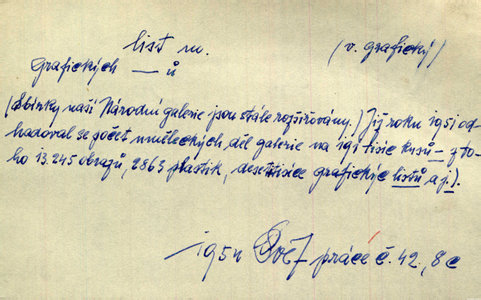 list m.
(v. grafický)
grafických — ů
(Sbírky naší Národní galerie jsou stále rozšiřovány.) Již roku 1951 od-
hadoval se počet uměleckých děl galerie na 191 tisíc kusů — z to-
ho 13.245 obrazů, 2863 plastik, desetitisíce grafických listů a j.).
1954 Svět práce č. 42, 8c